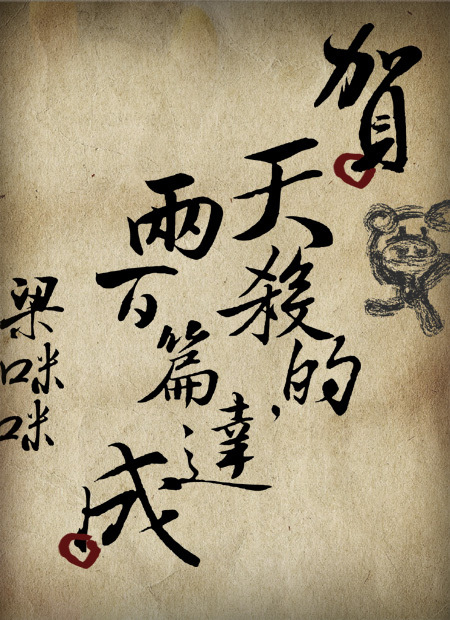 賀
天殺的，
兩百篇達
成
梁咪咪